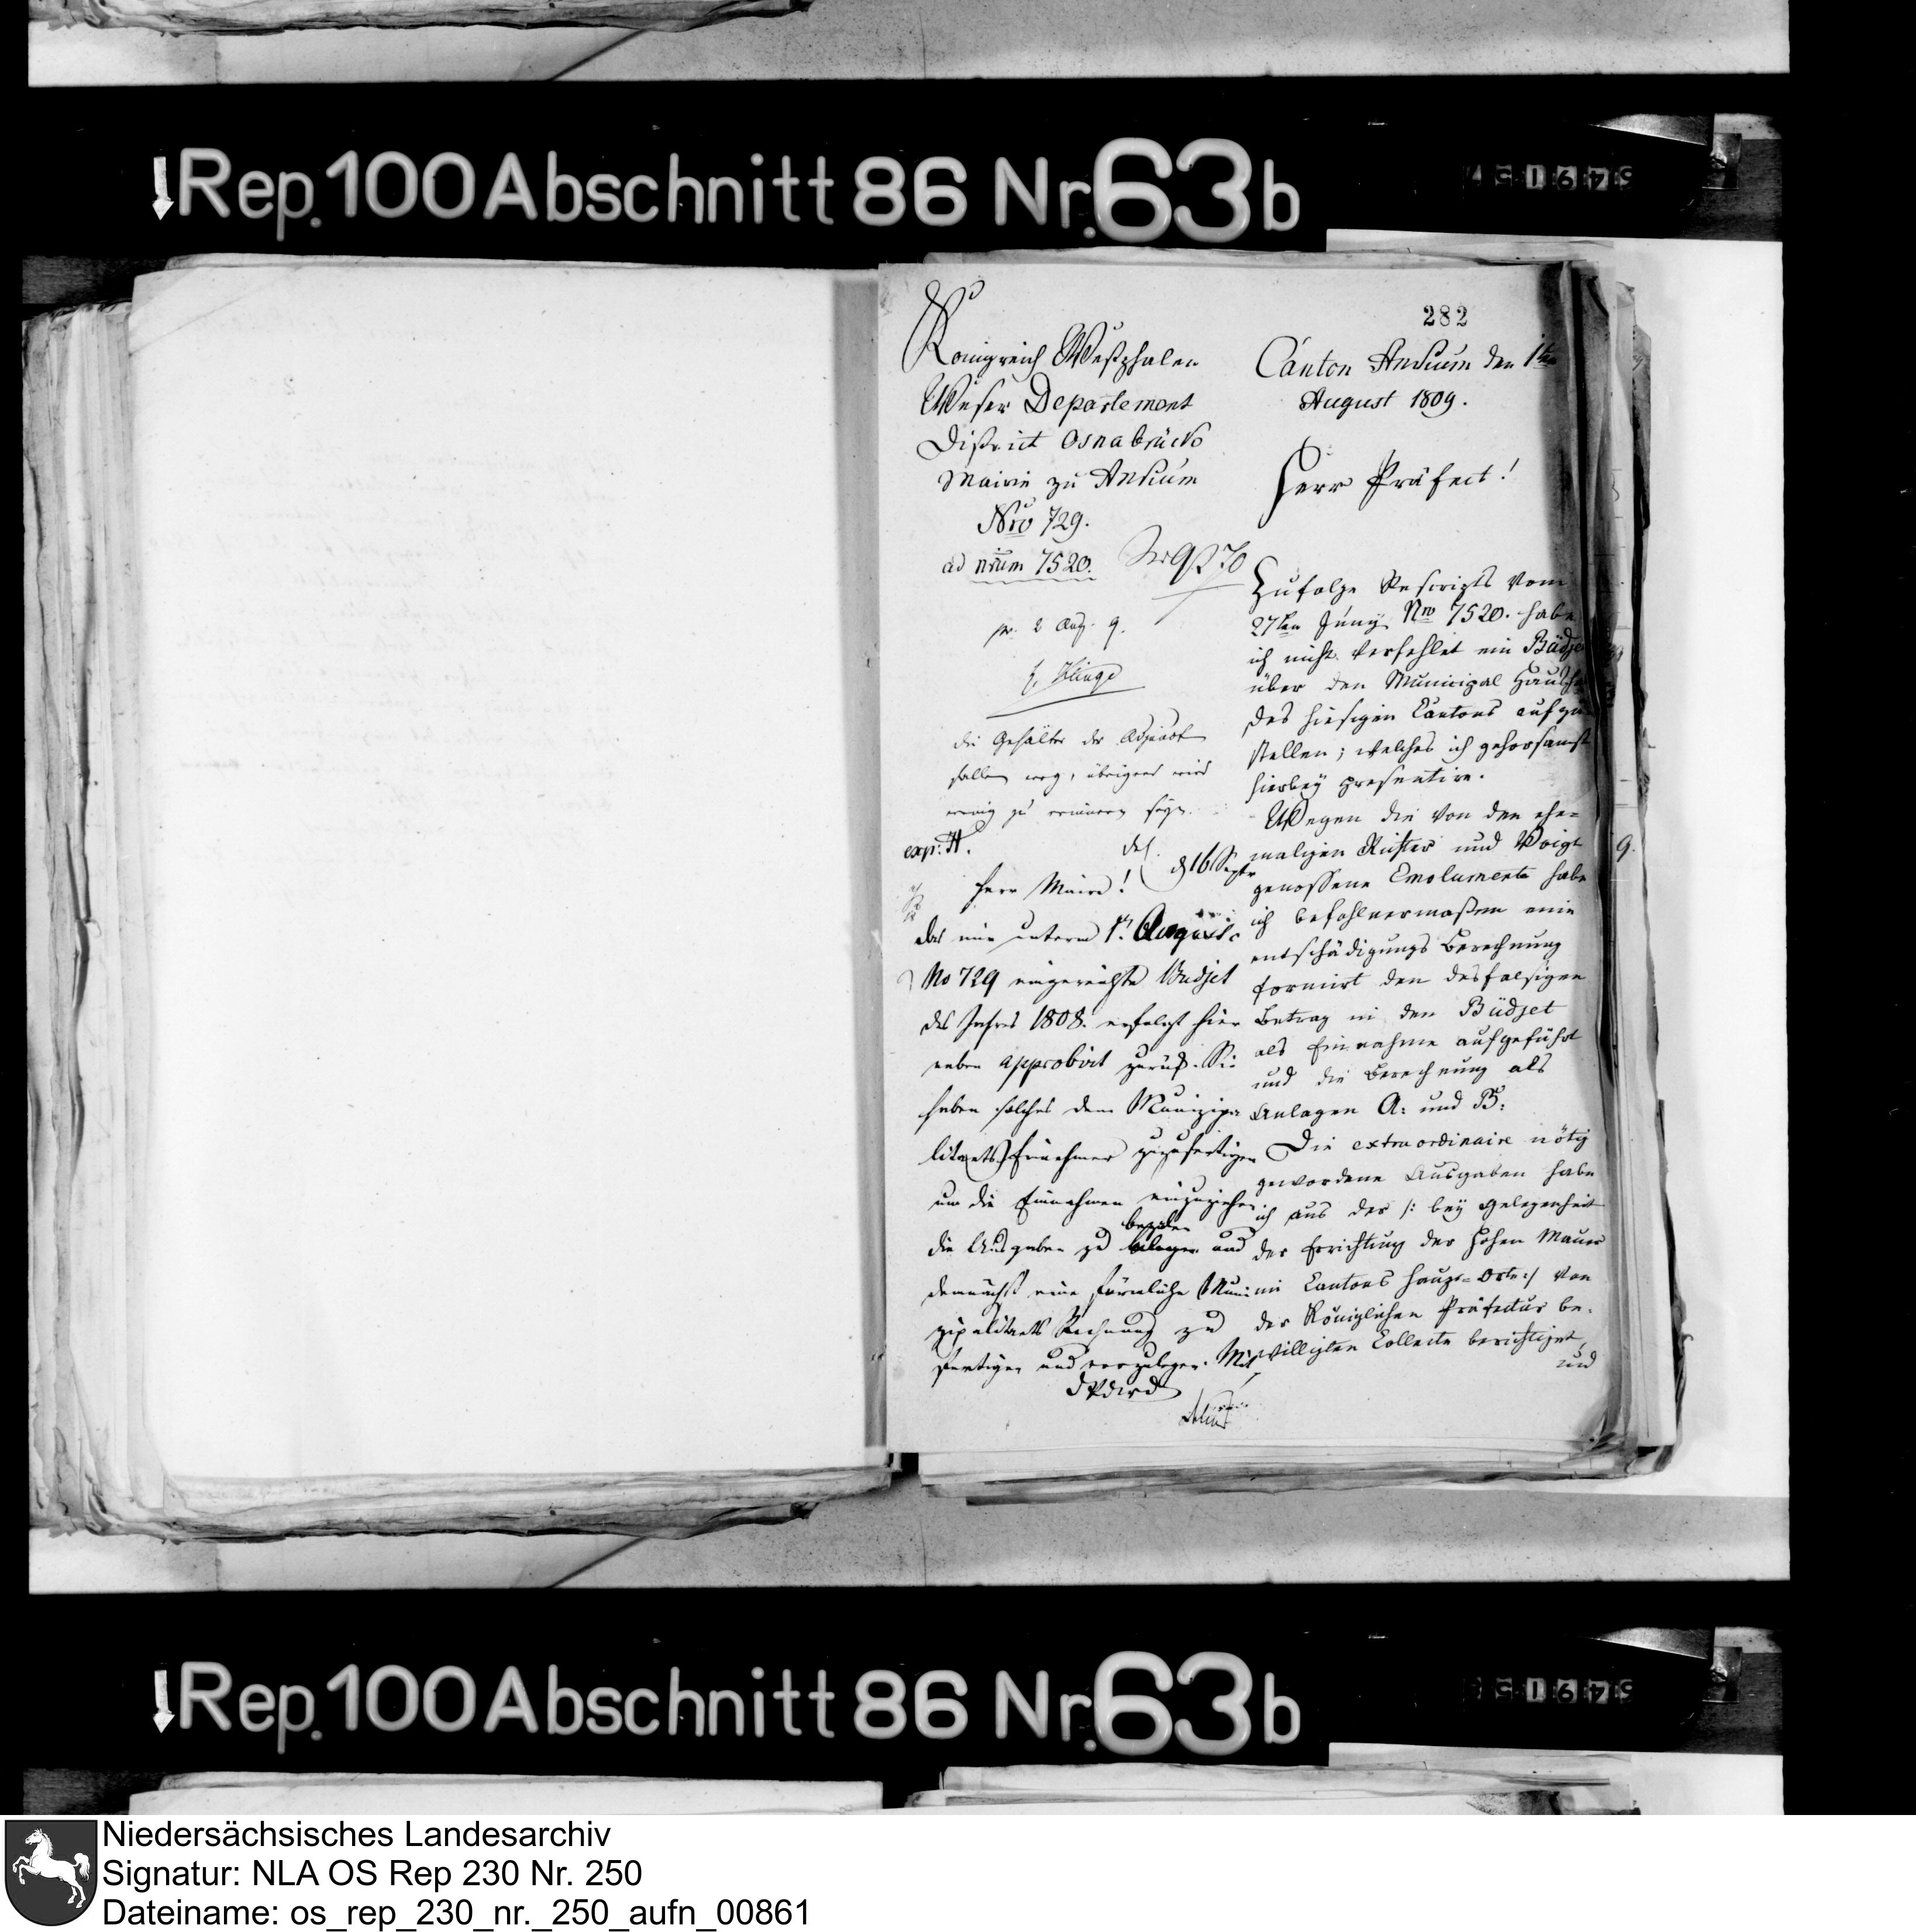 Rep. 100 Abschnitt 86 Nr. 63b
282
Königreich Westphalen
Weser Departement
District Osnabrück
Mairie zu Ankum
Nro 729.
ad nrum 7520.
pr. 2 Aug. 9.
die Gehälter der Adjuncte
fallen weg, übrigens wird
wenig zu erinnern seyn.
exp. H.
d 16 Septr
Herr Maire!
das mir unterm 1t. August c
No 729 eingereichte Budjet
des Jahres 1808. erfolgt hier
neben approbirt zurück. Sie
haben solches dem Munizipa
litaets Einnehmer zuzufertigen
um die Einnahmen einzuziehen
bezahlen
die Ausgaben zu und
demnächst eine förmliche Muni
zipalitaets Rechnung zu
fertigen und vorzulegen. Mit
Canton Ankum den 1ten
August 1809.
Herr Präfect!
Zufolge Rescripts vom
27ten Juny Nro 7520. habe
ich nicht verfehlet ein Büdje
über den Municipal Haush
des hiesigen Cantons aufzu
stellen; welches ich gehorsamst
hierbey presentire.
Wegen die von den ehe=
maligen Richter und Voigt
genossene Emolumente habe
ich befohlnermaßen eine
entschädigungs Berechnung
formirt den desfalsigen
Betrag in den Büdjet
als Einnahme aufgeführt
und die Berechnung als
Anlagen A: und B:
Die extraordinaire nötig
gewordene Ausgaben habe
ich aus der /: bey Gelegenheit
der Errichtung der hohen Mauer
im Cantons Haupt=Orte:/ von
der Königlichen Präfectur be-
willigten Collecte berichtiget,
und
Rep. 100 Abschnitt 86 Nr. 63b
Niedersächsisches Landesarchiv
Signatur: NLA OS Rep 230 Nr. 250
Dateiname: os_rep_230_nr._250_aufn_00861